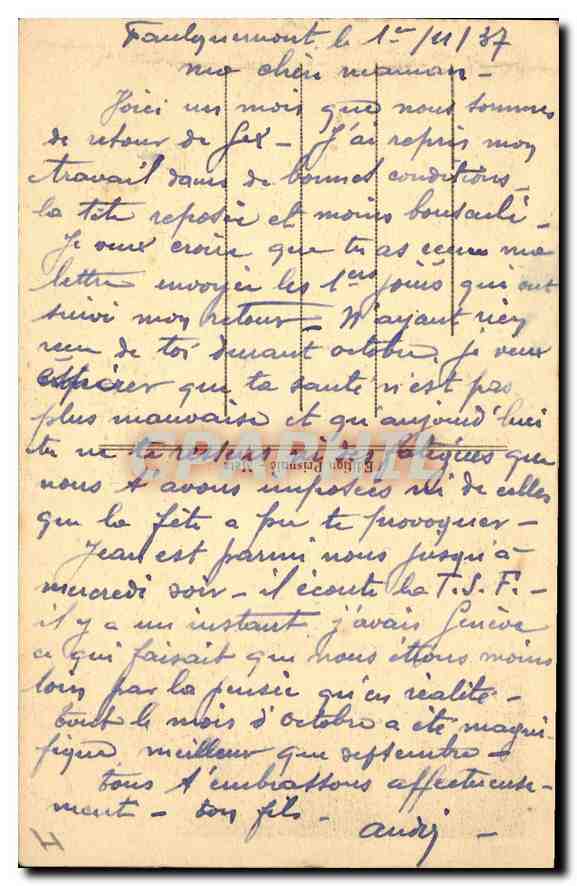 Faulquemont, le 1er/11/37
ma chère maman -
Voici un mois que nous sommes
de retour de Gex - J'ai repris mon
travail dans de bonnes conditions,
la tête reposée et moins bousculé -
Je veux croire que tu as reçu ma
lettre envoyée les 1ers jours qui ont
suivi mon retour - N'ayant rien
reçu de toi durant octobre, je veux
espérer que ta santé n'est pas
plus mauvaise et qu'aujourd'hui
tu ne te ressens ni des fatigues que
Edition Prisunic - Metz
nous t'avons imposées ni de celles
que la fête a pu te provoquer -
Jean est parmi nous jusqu'à
mercredi soir - il écoute la T.S.F. -
il y a un instant j'avais Genève
ce qui faisait que nous étions moins
loin par la pensée qu'en réalité -
tout le mois d'octobre a été magni-
fique, meilleur que septembre -
tous t'embrassons affectueuse-
ment - ton fils -
André -